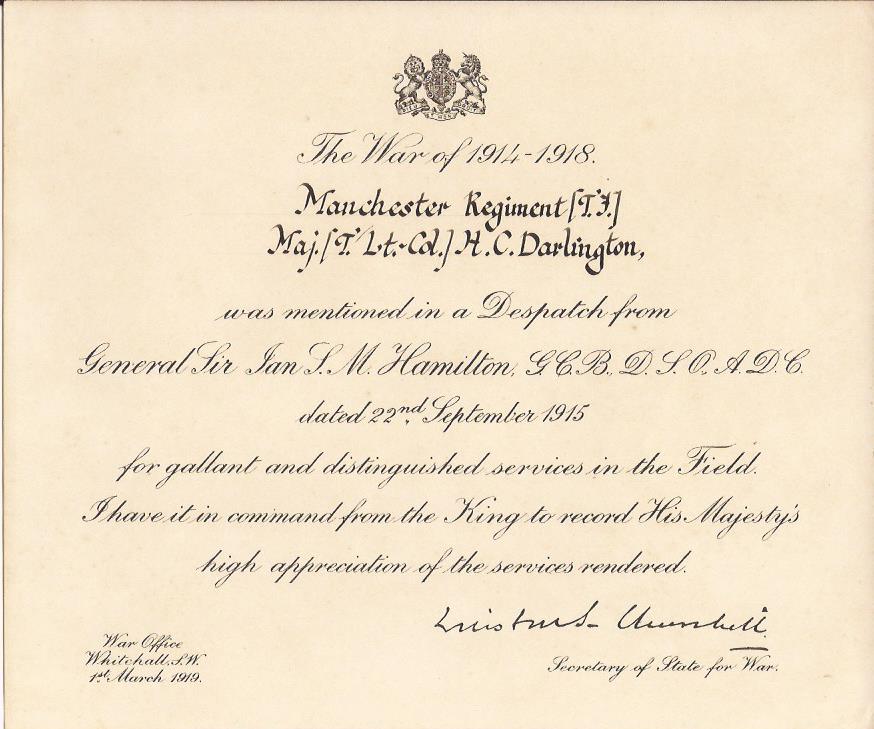 The War of 1914-1918.
Manchester Regiment [T.F.]
Maj. [T/Lt.-Col.] H.C. Darlington,
was mentioned in a Despatch from
General Sir Ian S. M. Hamilton, G.C.B., D.S.O., A.D.C.
dated 22nd September 1915
for gallant and distinguished services in the Field.
I have it in command from the King to record His Majesty's
high appreciation of the services rendered.
Winston S. Churchill
War Office
Whitehall, S.W.
1st March 1919.
Secretary of State for War.